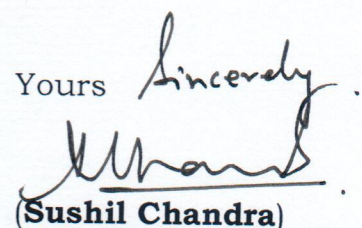 Yours Sincerely.
(Sushil Chandra)